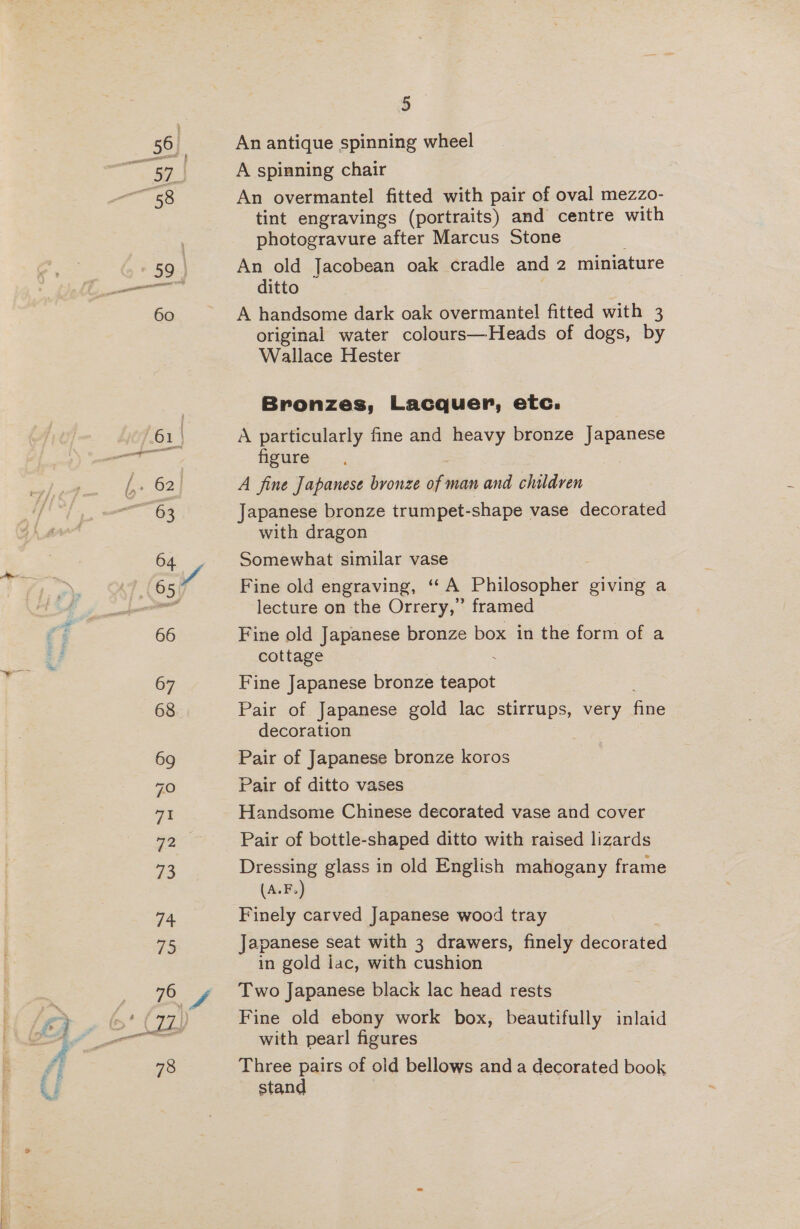 5
56 An antique spinning wheel
57 A spinning chair
58 An overmantel fitted with pair of oval mezzo-
tint engravings (portraits) and centre with
photogravure after Marcus Stone
59 An old Jacobean oak cradle and 2 miniature
ditto
60 A handsome dark oak overmantel fitted with 3
original water colours—Heads of dogs, by
Wallace Hester
Bronzes, Lacquer, etc.
61 A particularly fine and heavy bronze Japanese
figure
62 A fine Japanese bronze of man and children
63 Japanese bronze trumpet-shape vase decorated
with dragon
64 Somewhat similar vase
65 Fine old engraving, “A Philosopher giving a
lecture on the Orrery,” framed
66 Fine old Japanese bronze box in the form of a
cottage
67 Fine Japanese bronze teapot
68 Pair of Japanese gold lac stirrups, very fine
decoration
69 Pair of Japanese bronze koros
70 Pair of ditto vases
71 Handsome Chinese decorated vase and cover
72 Pair of bottle-shaped ditto with raised lizards
73 Dressing glass in old English mahogany frame
(A.F.)
74 Finely carved Japanese wood tray
75 Japanese seat with 3 drawers, finely decorated
in gold lac, with cushion
76 Two Japanese black lac head rests
77 Fine old ebony work box, beautifully inlaid
with pearl figures
78 Three pairs of old bellows and a decorated book
stand